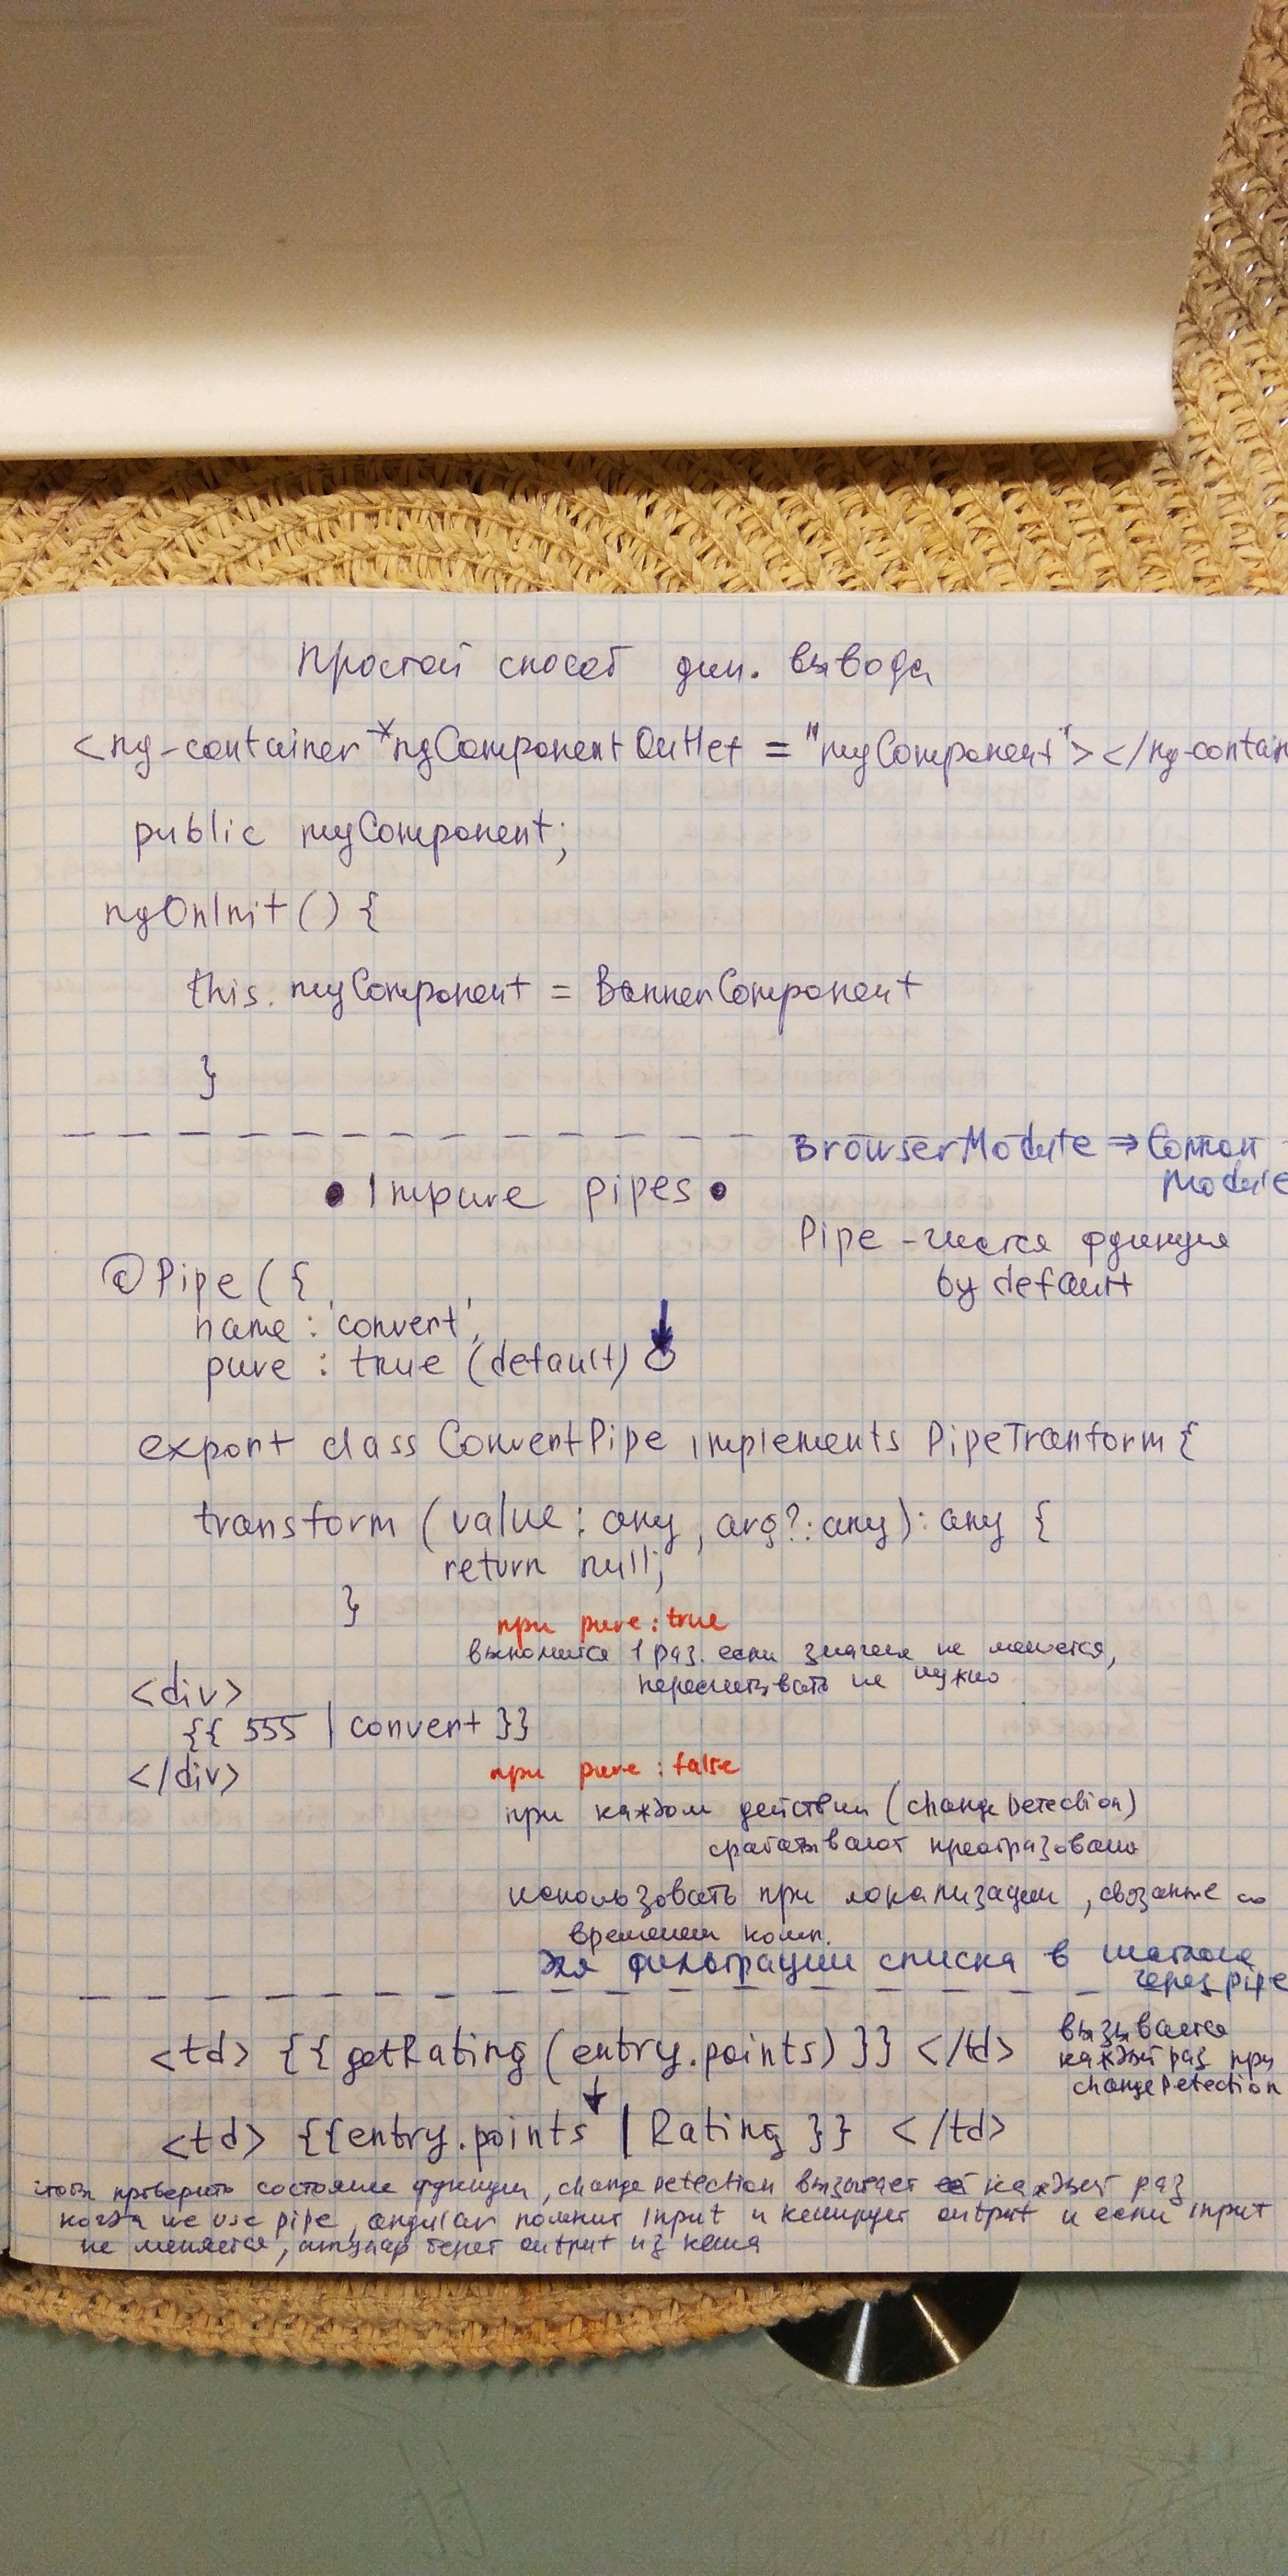 Простой способ дин. вывода
<ng-container *ngComponentOutlet = "myComponent"></ng-contain
public myComponent;
ngOnInit() {
this. myComponent = BannerComponent
}
BrowserModule ⇒ Common
Module
• Impure pipes •
Pipe - чистая функция
by default
@Pipe ({
name : 'convert',
pure : true (default)
export class ConvertPipe implements PipeTranform {
transform (value : any, arg? : any) : any {
return null;
}
при pure : true
выполнится 1 раз. если значения не меняется,
пересчитывать не нужно
<div>
{{ 555 | convert }}
</div>
при pure : false
при каждом действии (changeDetection)
срабатывают преобразование
использовать при локализации, связанные со
временем комп.
для фильтрации списка в шаблоне
через pipe
<td> {{getRating (entry.points) }} </td>
вызывается
каждый раз при
changeDetection
<td> {{entry.points | Rating }} </td>
чтобы проверить состояние функции, changeDetection вызывает её каждый раз
когда we use pipe, angular помнит input и кеширует output и если input
не меняется, ангуляр берет output из кеша